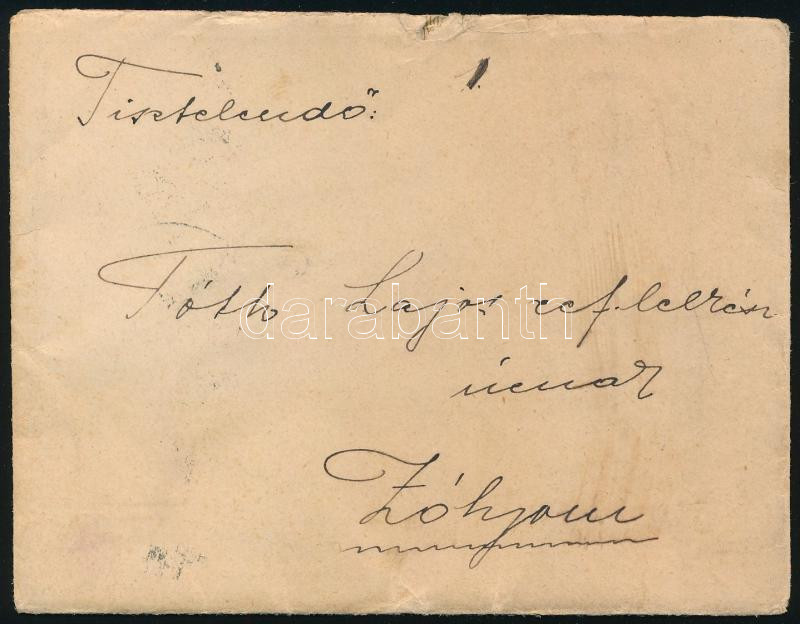 Tisztelendő:
1.
Tóth Lajos ref. lelkész
úrnak
darabanth